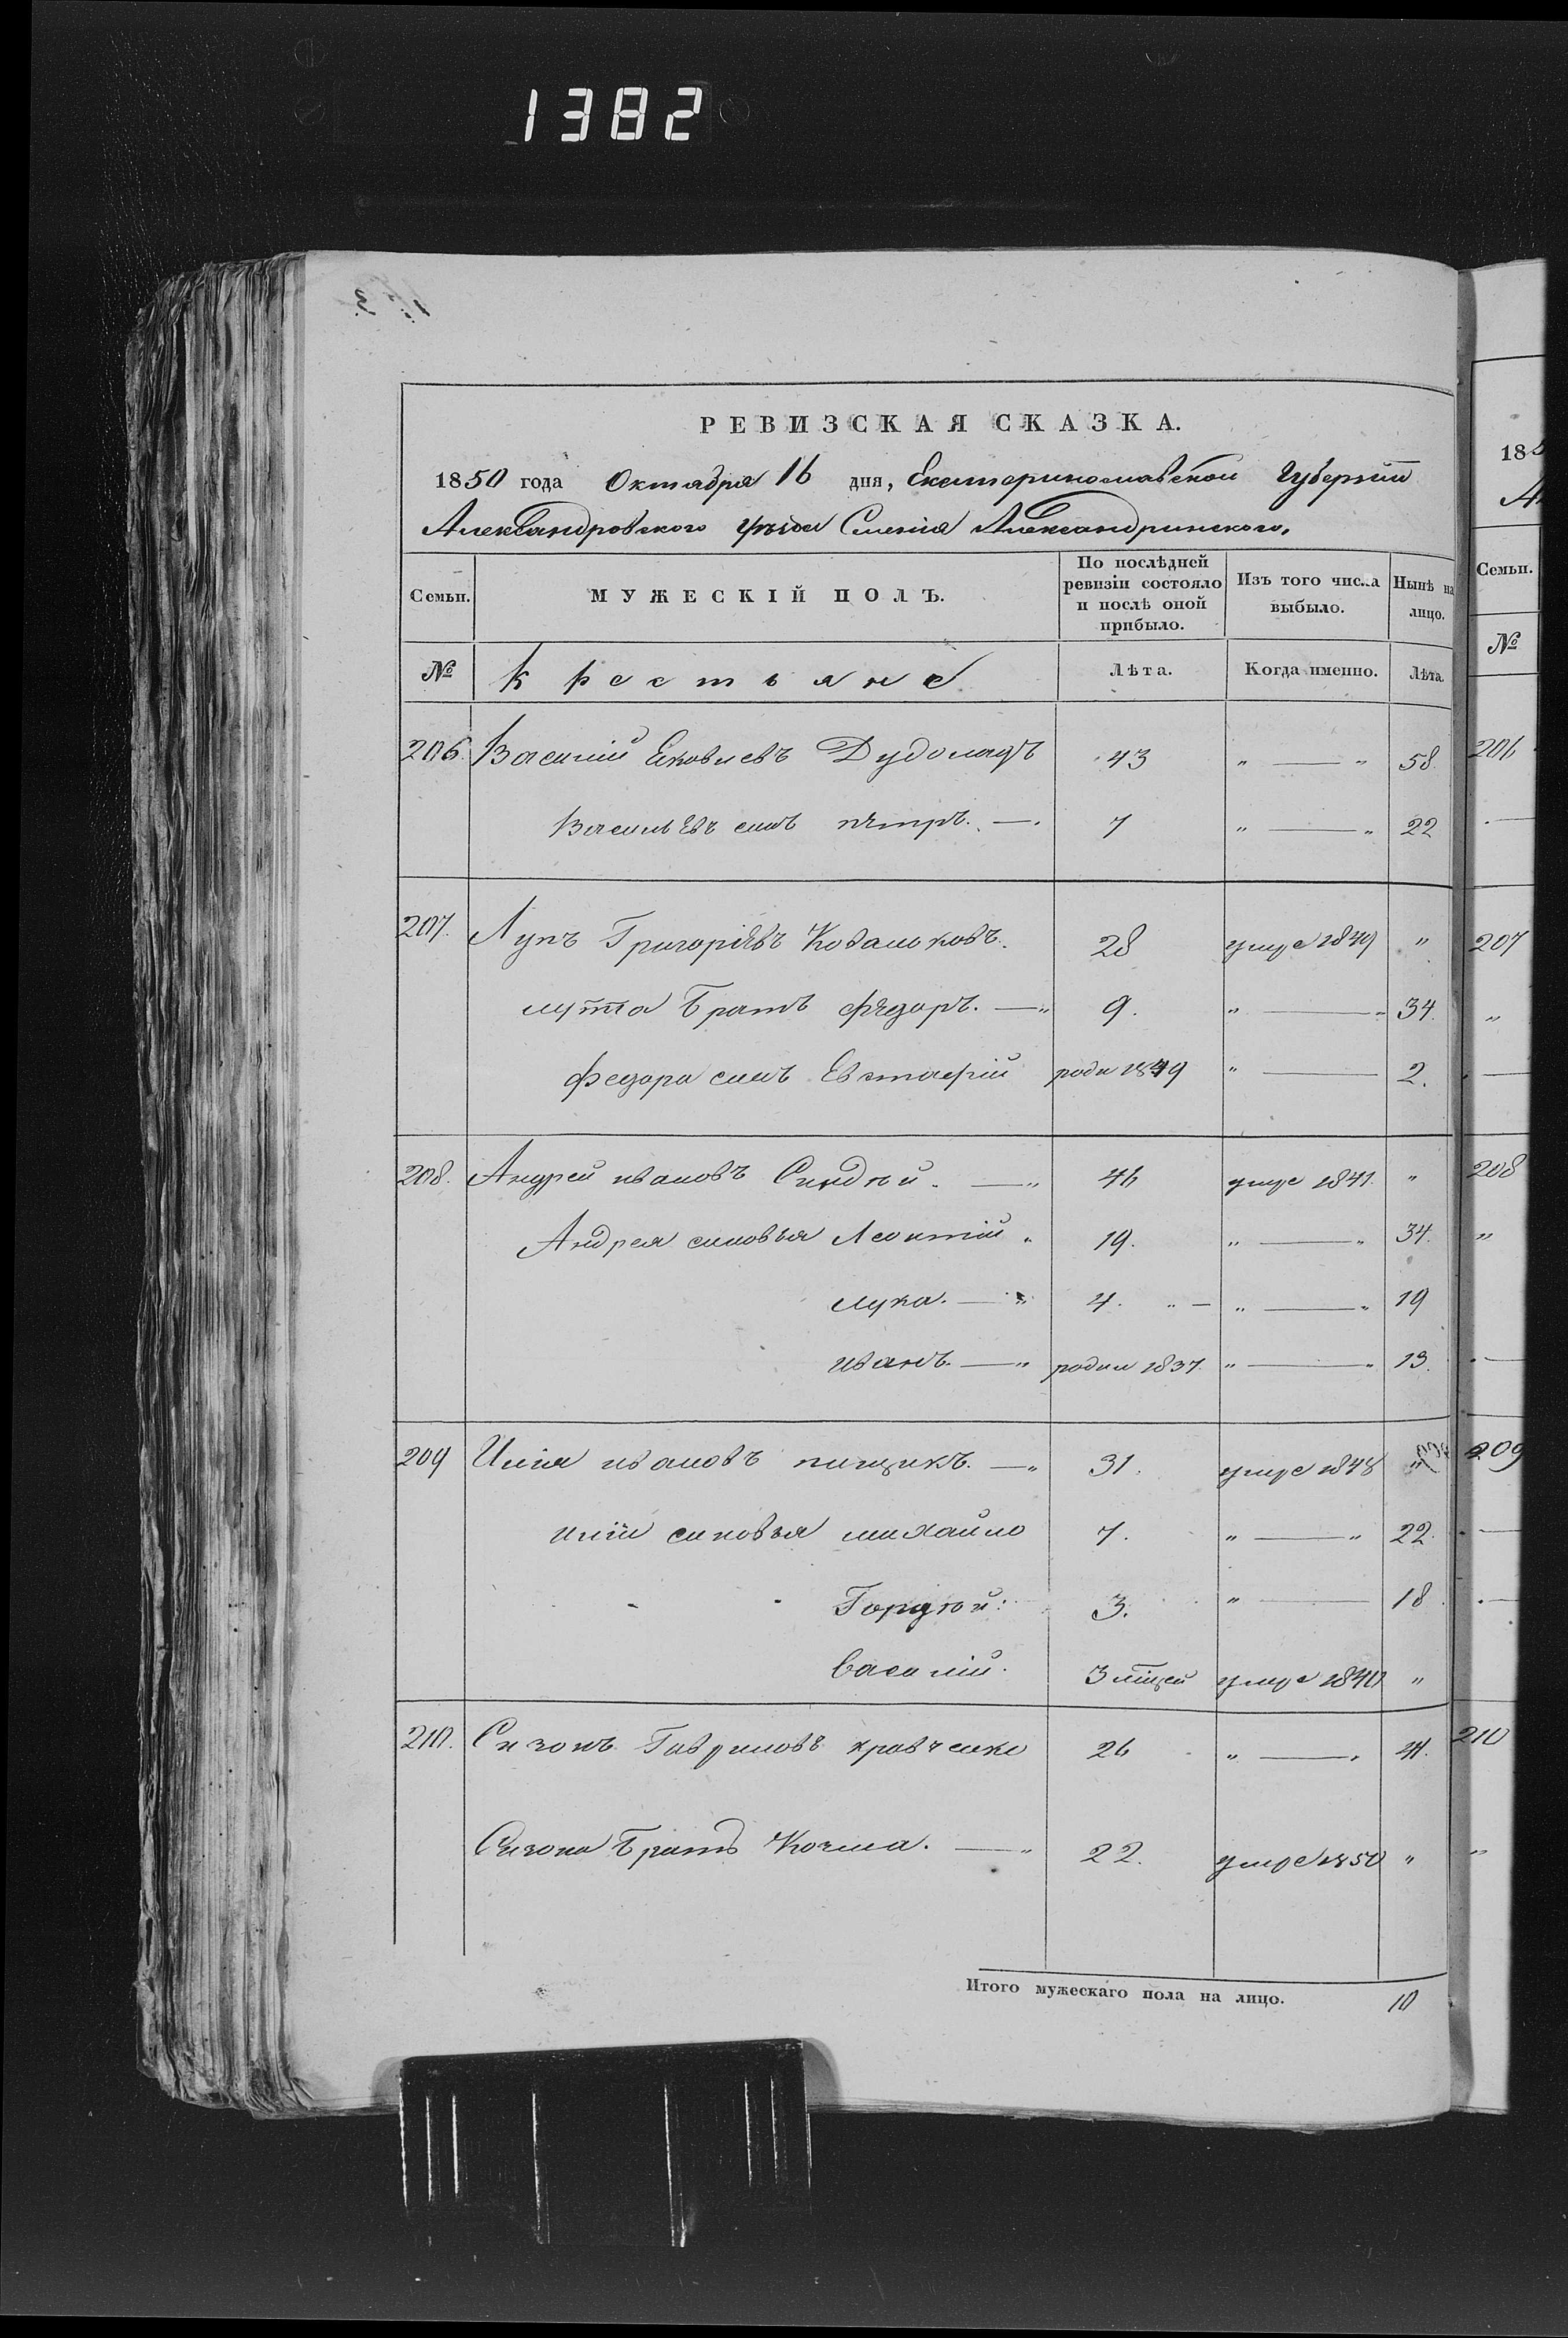 1382
РЕВИЗСКАЯ СКАЗКА.
1850 года Октября 16 дня, Екатеринославской Губерніи
Александровского уѣзда Селенія Александринского.
Семьи. МУЖЕСКІЙ ПОЛЪ. По послѣдней ревизіи состояло и послѣ оной прибыло. Изъ того числа выбыло. Нынѣ на лицо.
№ Крестьяне Лѣта. Когда именно. Лѣта.
206. Василій Яковлевъ 43 " — " 58
Васильевъ сынъ Петръ. — 7 " — " 22
207. Лупъ Григорьевъ 28 умре 1849 "
Лупа Братъ Федоръ. — " 9. " — " 34.
Федора сынъ Евстафій роди 1849 " — 2.
208. Андрей Ивановъ — " 46 умре 1841. "
Андрея сыновья Леонтій " 19. " — " 34.
Лука. — " 4. " — " — " 19
Иванъ. — " родил 1837. " — " 13.
209 Илія Ивановъ — " 31. умре 1848 "
Иліи сыновья Михайло 7. " — " 22.
Гордѣй: 3. " — 18
Василій. 3 мѣсяцей умре 1840 "
210. Сизонъ Гавриловъ Кравченко 26 " — " 41.
Сизона Братъ Козма. — " 22. умре 1850 "
Итого мужескаго пола на лицо. 10
185
А
Семьи.
№
206
207
"
208
"
209
210
"